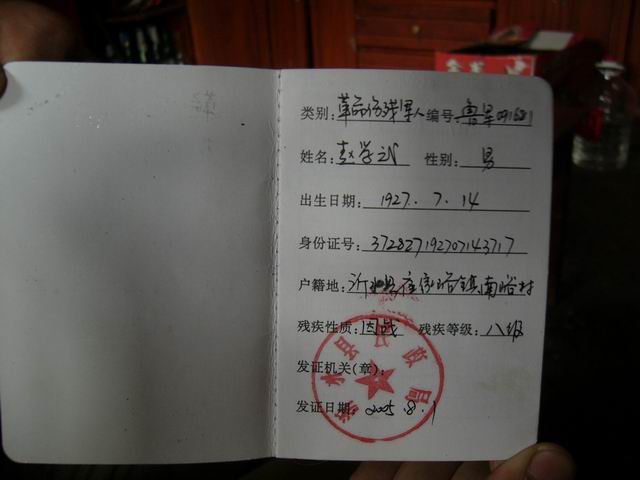 类别:革命伤残军人 编号:鲁军091681
姓名:赵学武 性别:男
出生日期:1927.7.14
身份证号:372827192707143717
户籍地:沂水县 镇南峪村
残疾性质:因战 残疾等级:八级
发证机关(章):
发证日期:2005.8.1
沂水县民政局